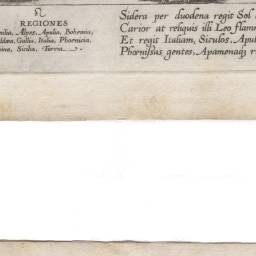 ♌
REGIONES
milia, Alpes, Apulia, Bohemia,
ldæa, Gallia, Italia, Phœnicia,
Sicilia, Turcia.
Sidera per duodena regit Sol
Carior at reliquis illi Leo flam
Et regit Italiam, Siculos, Apul
Phœnissas gentes, Apamenaq r